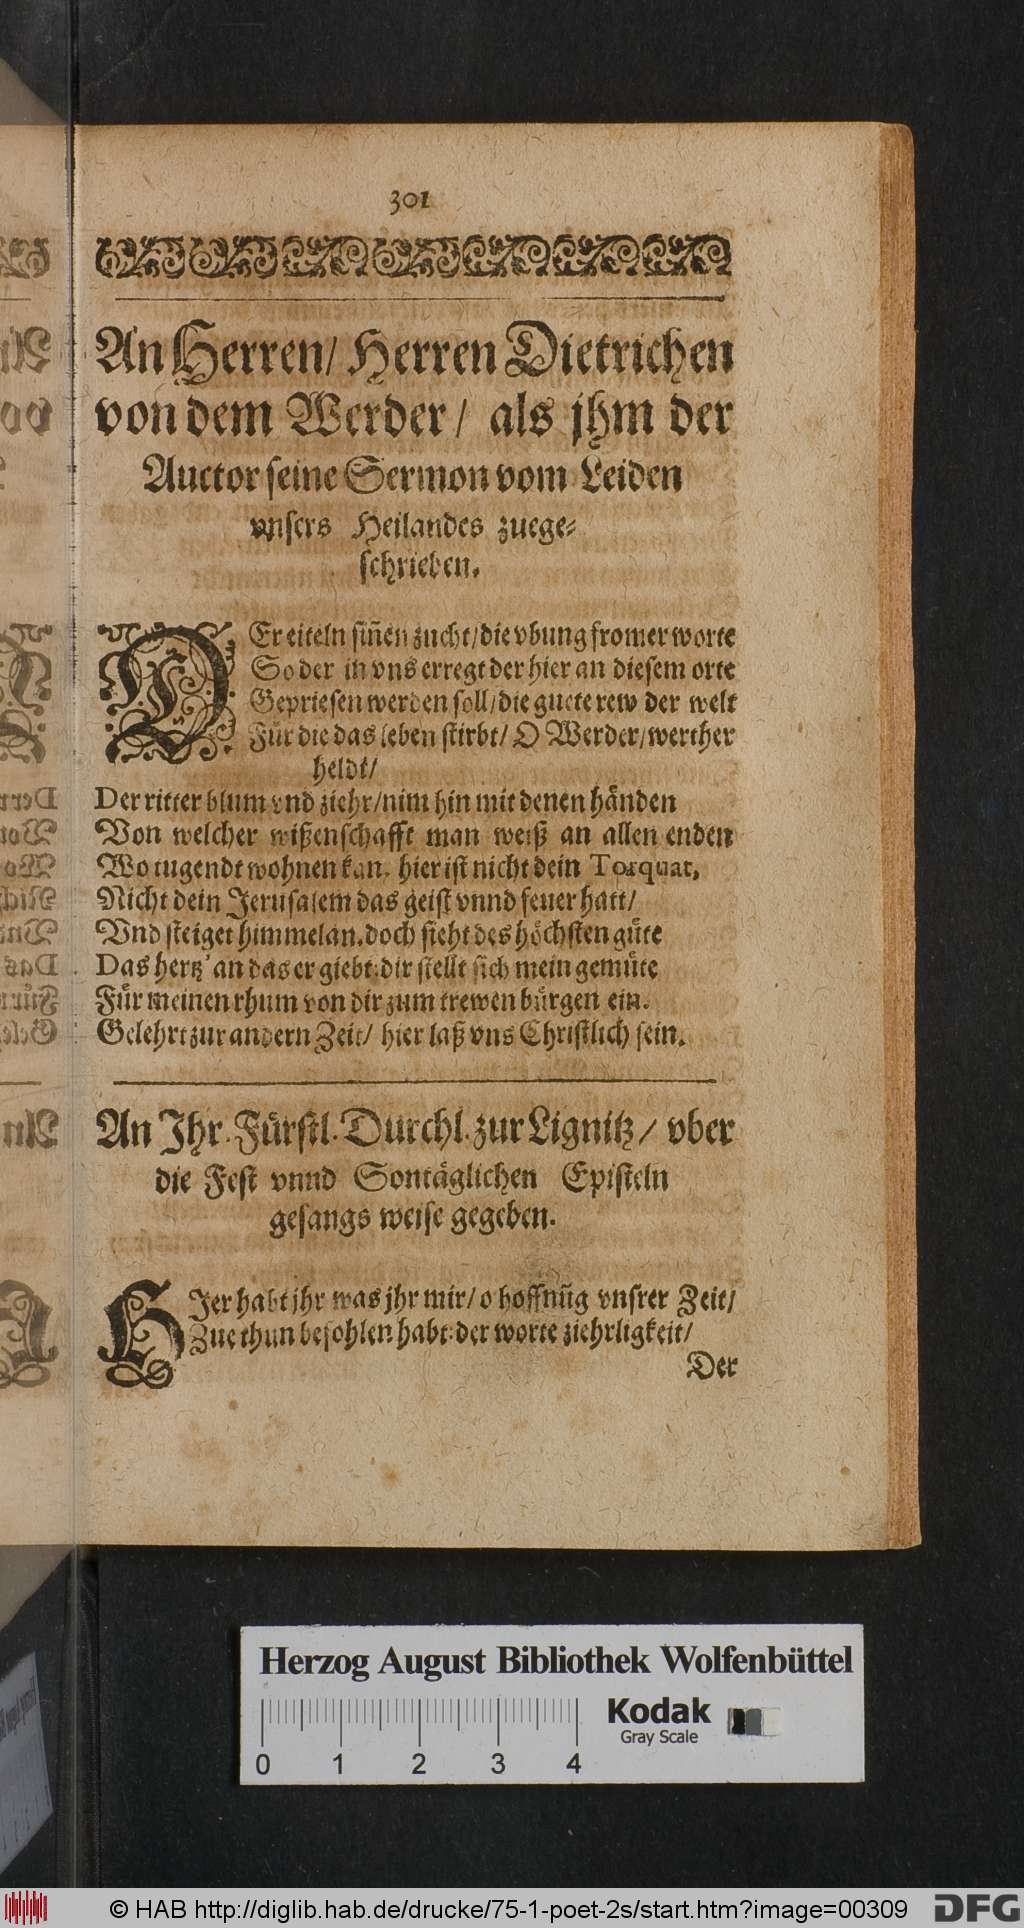 301
An Herren/ Herren Dietrichen
von dem Werder/ als jhm der
Auctor seine Sermon vom Leiden
vnsers Heilandes zuege-
schrieben.
DEr eiteln siñen zucht/ die vbung fromer worte
So der in vns erregt der hier an diesem orte
Gepriesen werden soll/ die guete rew der welt
Für die das leben stirbt/ O Werder/ werther
heldt/
Der ritter blum vnd ziehr/ nim hin mit denen händen
Von welcher wißenschafft man weiß an allen enden
Wo tugendt wohnen kan, hier ist nicht dein Torquat,
Nicht dein Jerusalem das geist vnnd feuer hatt/
Vnd steiget himmelan. doch sieht des höchsten güte
Das hertz' an das er giebt: dir stellt sich mein gemüte
Für meinen rhum von dir zum trewen bürgen ein.
Gelehrt zur andern Zeit/ hier laß vns Christlich sein.
An Jhr. Fürstl. Durchl. zur Lignitz/ vber
die Fest vnnd Sontäglichen Episteln
gesangs weise gegeben.
HJer habt jhr was jhr mir/ o hoffnũg vnsrer Zeit/
Zue thun befohlen habt: der worte ziehrligkeit/
Der
Herzog August Bibliothek Wolfenbüttel
Kodak
Gray Scale
0 1 2 3 4
© HAB http://diglib.hab.de/drucke/75-1-poet-2s/start.htm?image=00309
DFG